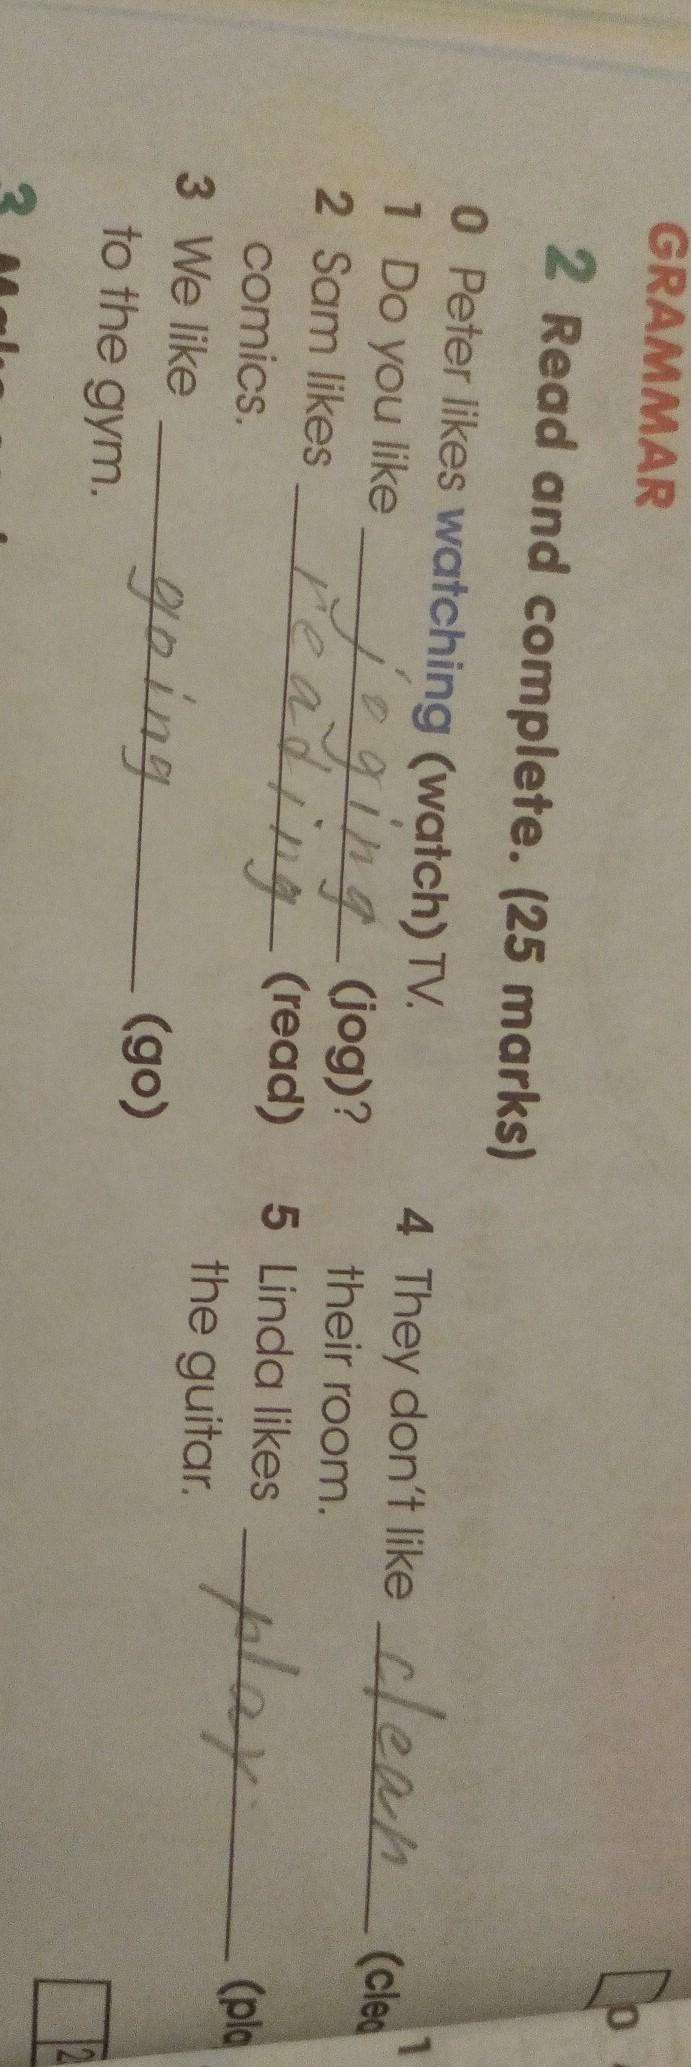 GRAMMAR
2 Read and complete. (25 marks)
0 Peter likes watching (watch) TV.
1 Do you like joging (jog)?
2 Sam likes reading (read)
comics.
3 We like going (go)
to the gym.
4 They don't like clean (clea
their room.
5 Linda likes play (pla
the guitar.